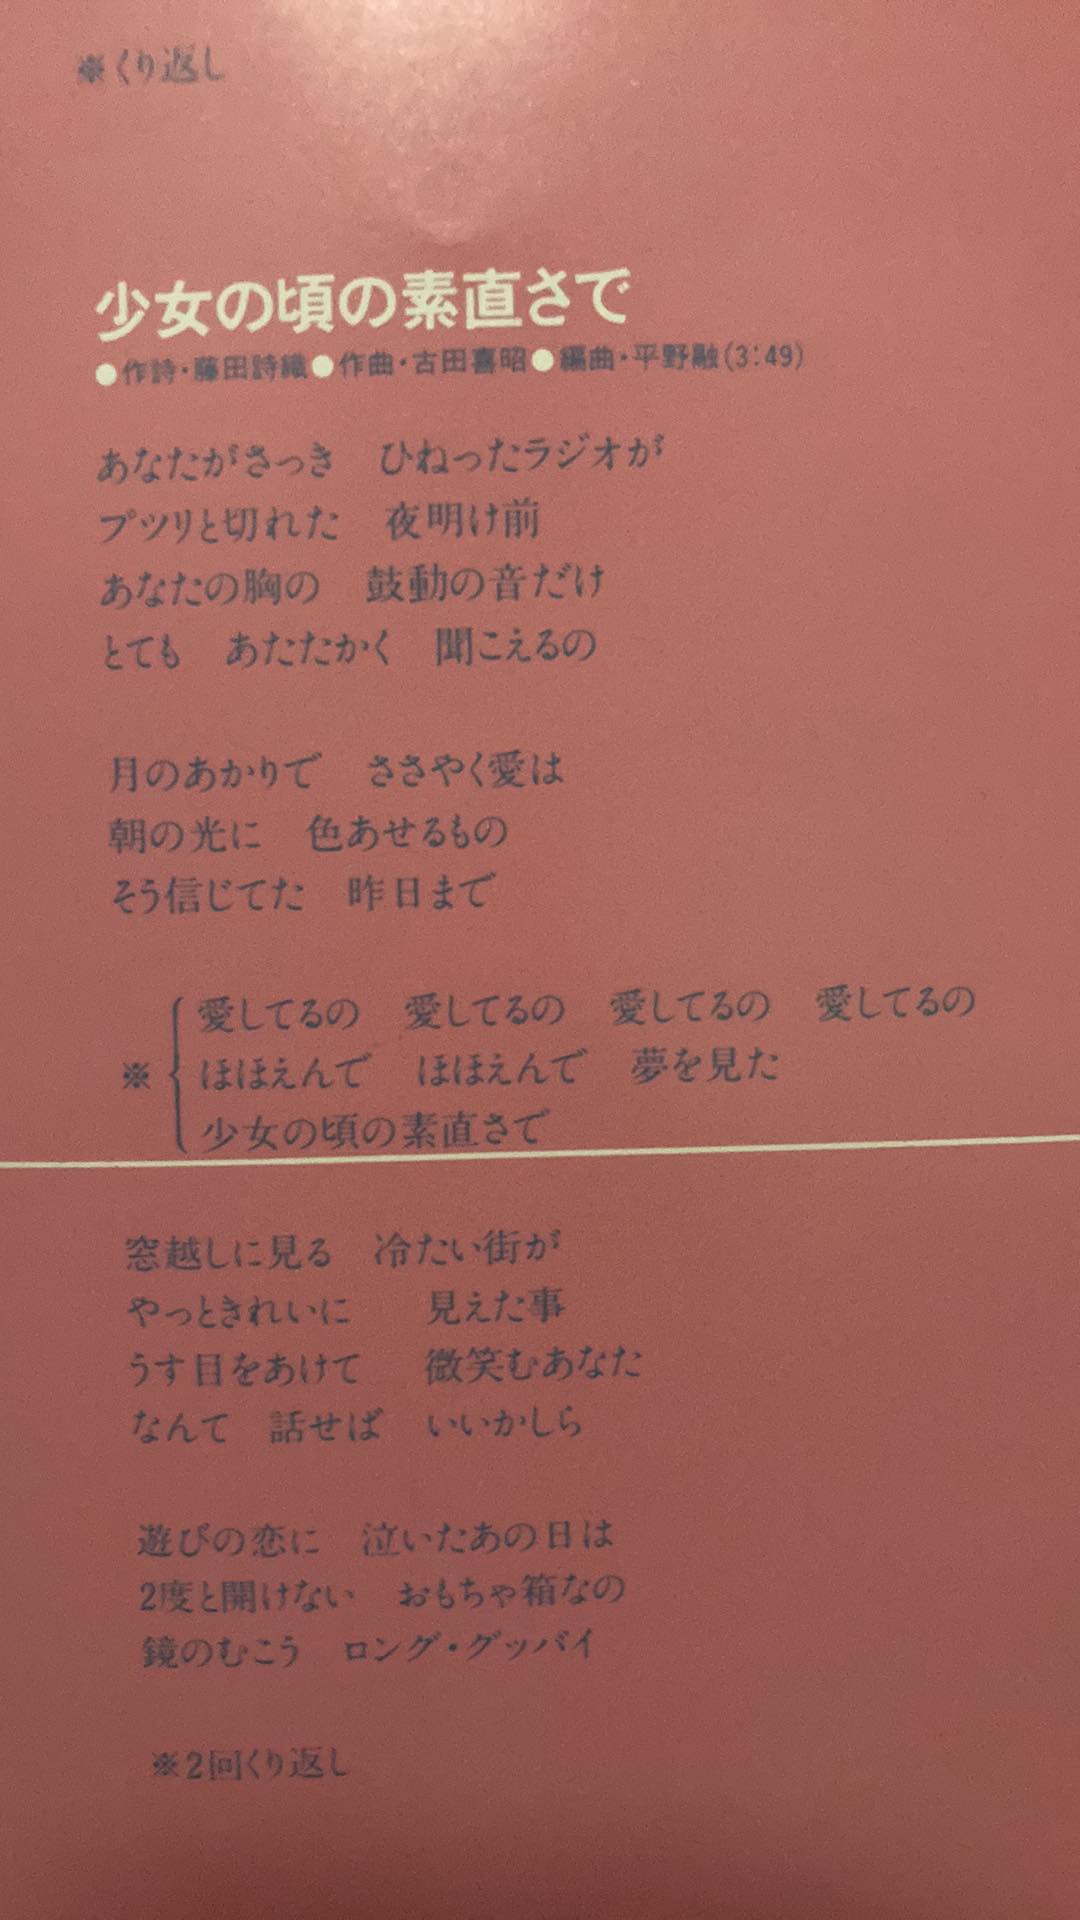 ※くり返し
少女の頃の素直さで
●作詩・藤田詩織●作曲・古田喜昭●編曲・平野融(3:49)
あなたがさっき　ひねったラジオが
プツリと切れた　夜明け前
あなたの胸の　鼓動の音だけ
とても　あたたかく　聞こえるの
月のあかりで　ささやく愛は
朝の光に　色あせるもの
そう信じてた　昨日まで
愛してるの　愛してるの　愛してるの　愛してるの
※ ほほえんで　ほほえんで　夢を見た
少女の頃の素直さで
窓越しに見る　冷たい街が
やっときれいに　見えた事
うす目をあけて　微笑むあなた
なんて　話せば　いいかしら
遊びの恋に　泣いたあの日は
2度と開けない　おもちゃ箱なの
鏡のむこう　ロング・グッバイ
※2回くり返し